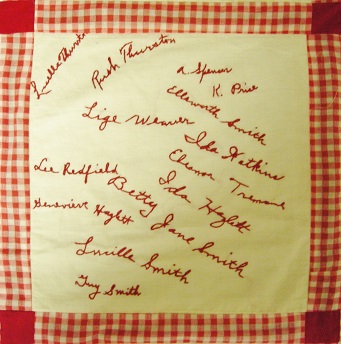 Lucille Thurston
Rush Thurston
A. Spencer
K. Price
Ellsworth Smith
Lige Weaver
Ida Watkins
Eleanor Tremane
Lee Redfield
Ida Hazlett
Genevieve Hazlett
Betty Jane Smith
Lucille Smith
Guy Smith